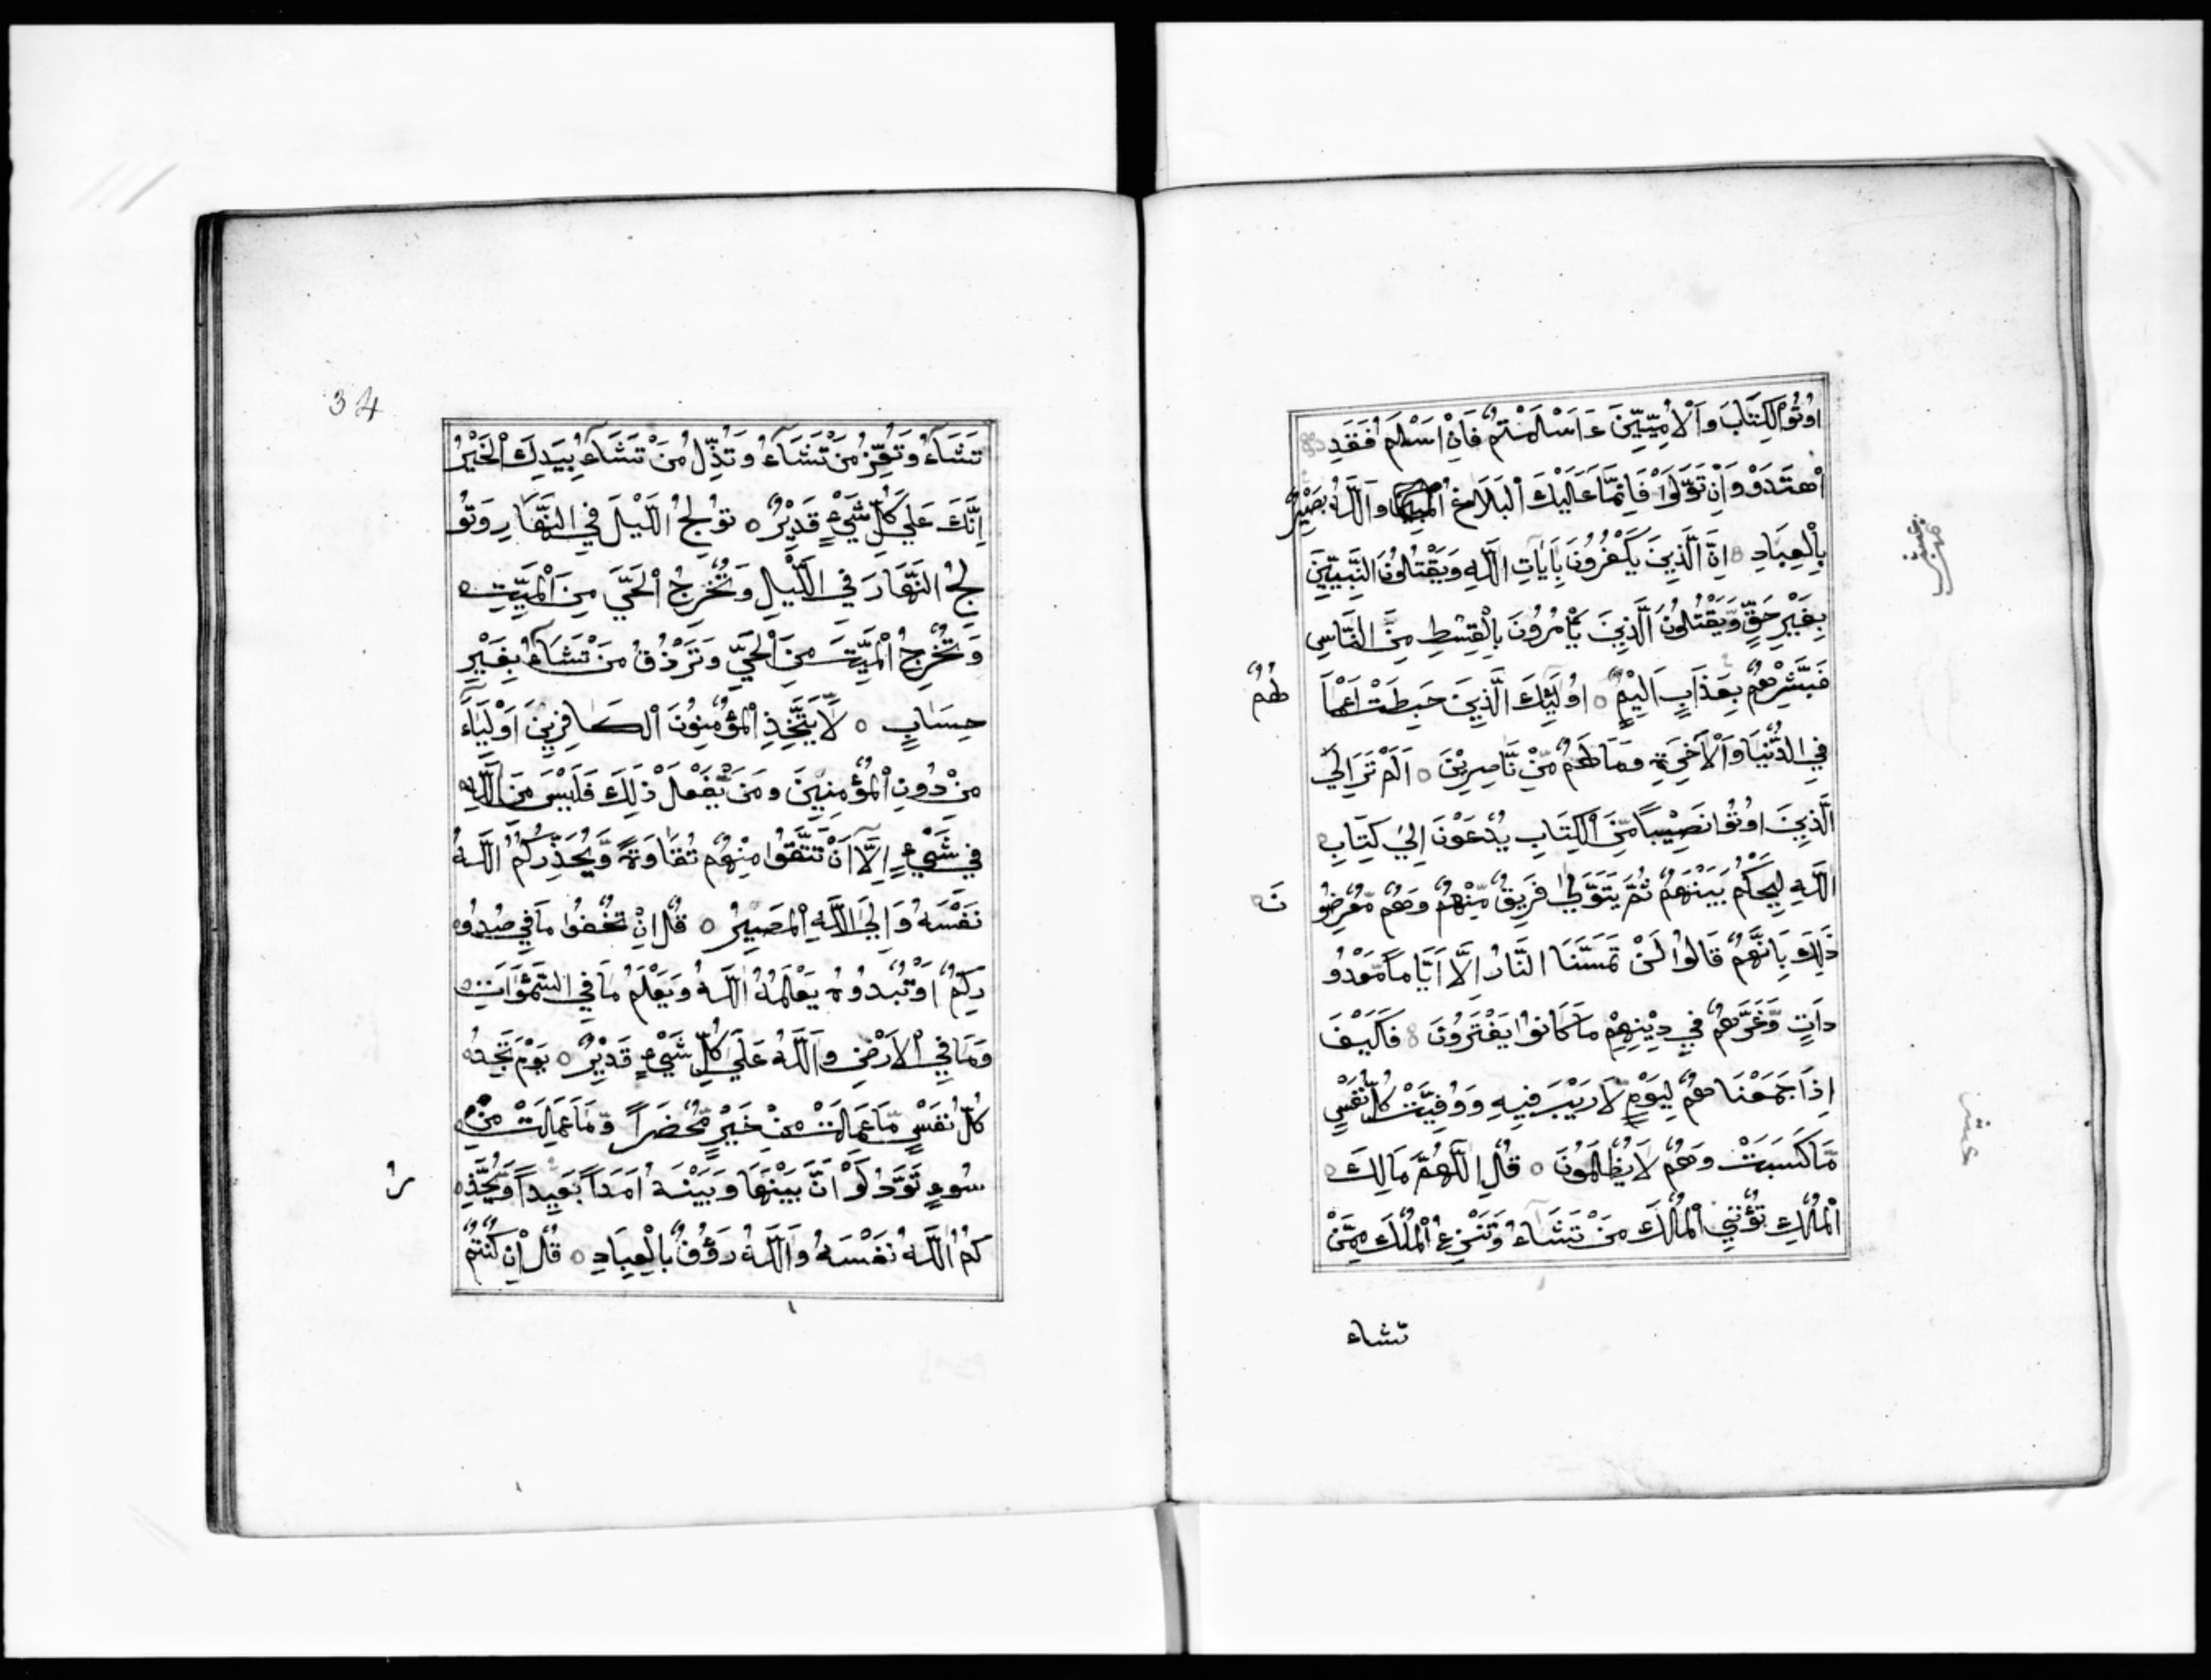 اُوتُوا الْكِتَابَ وَالْاُمِّيِّينَ ءَاَسْلَمْتُمْ فَاِنْ اَسْلَمُ فَقَدِ
اهْتَدَوْ وَاِنْ تَوَلَّوْا فَاِنَّمَا عَلَيْكَ الْبَلَاغُ الْمُبِينُ وَاللَّهُ بَصِيْرٌ
بِالْعِبَادِ اِنَّ الَّذِينَ يَكْفُرُونَ بِآيَاتِ اللَّهِ وَيَقْتُلُونَ النَّبِيِّينَ
بِغَيْرِ حَقٍّ وَّيَقْتُلُونَ الَّذِينَ يَأْمُرُونَ بِالْقِسْطِ مِنَ النَّاسِ
فَبَشِّرْهُمْ بِعَذَابٍ اَلِيْمٍ ○ اُولَئِكَ الَّذِينَ حَبِطَتْ اَعْمَا
لُهُمْ
فِي الدُّنْيَا وَالْآخِرَةِ وَمَا لَهُمْ مِّنْ نَّاصِرِيْنَ ○ اَلَمْ تَرَ اِلَي
الَّذِينَ اُوتُوا نَصِيْبًا مِّنَ الْكِتَابِ يُدْعَوْنَ اِلَي كِتَابِ
اللَّهِ لِيَحْكُمَ بَيْنَهُمْ ثُمَّ يَتَوَلَّي فَرِيقٌ مِّنْهُمْ وَهُمْ مُّعْرِضُو
نَ
ذَلِكَ بِاَنَّهُمْ قَالُوا لَنْ تَمَسَّنَا النَّارُ اِلَّا اَيَّامًا مَّعْدُو
دَاتٍ وَّغَرَّهُمْ فِي دِيْنِهِمْ مَا كَانُوا يَفْتَرُونَ فَكَيْفَ
اِذَا جَمَعْنَاهُمْ لِيَوْمٍ لَّا رَيْبَ فِيهِ وَوُفِّيَتْ كُلُّ نَفْسٍ
مَّا كَسَبَتْ وَهُمْ لَا يُظْلَمُونَ ○ قُلِ اللَّهُمَّ مَالِكَ
الْمُلْكِ تُؤْتِي الْمُلْكَ مَنْ تَشَاءُ وَتَنْزِعُ الْمُلْكَ مِمَّنْ
تشاء
34
تَشَاءُ وَتُعِزُّ مَنْ تَشَاءُ وَتُذِلُّ مَنْ تَشَاءُ بِيَدِكَ الْخَيْرُ
اِنَّكَ عَلَي كُلِّ شَيْءٍ قَدِيْرٌ ○ تُولِجُ اللَّيْلَ فِي النَّهَارِ وَتُو
لِجُ النَّهَارَ فِي اللَّيْلِ وَتُخْرِجُ الْحَيَّ مِنَ الْمَيِّتِ
وَتُخْرِجُ الْمَيِّتَ مِنَ الْحَيِّ وَتَرْزُقُ مَنْ تَشَاءُ بِغَيْرِ
حِسَابٍ ○ لَا يَتَّخِذِ الْمُؤْمِنُونَ الْكَافِرِينَ اَوْلِيَاءَ
مِنْ دُونِ الْمُؤْمِنِينَ وَمَنْ يَّفْعَلْ ذَلِكَ فَلَيْسَ مِنَ اللَّهِ
فِي شَيْءٍ اِلَّا اَنْ تَتَّقُوا مِنْهُمْ تُقَاوةً وَّيُحَذِّرُكُمُ اللَّهُ
نَفْسَهُ وَاِلَي اللَّهِ الْمَصِيْرُ ○ قُلْ اِنْ تُخْفُوا مَا فِي صُدُو
رِكُمْ اَوْ تُبْدُوهُ يَعْلَمْهُ اللَّهُ وَيَعْلَمُ مَا فِي السَّمٰوَاتِ
وَمَا فِي الْاَرْضِ وَاللَّهُ عَلَي كُلِّ شَيْءٍ قَدِيْرٌ ○ يَوْمَ تَجِدُ
كُلُّ نَفْسٍ مَّا عَمِلَتْ مِنْ خَيْرٍ مُّحْضَرًا وَّمَا عَمِلَتْ مِنْ
سُوءٍ تَوَدُّ لَوْ اَنَّ بَيْنَهَا وَبَيْنَهُ اَمَدًا بَعِيدًا وَّيُحَذِّ
رُ
كُمُ اللَّهُ نَفْسَهُ وَاللَّهُ رَؤُفٌ بِالْعِبَادِ ○ قُلْ اِنْ كُنْتُمْ